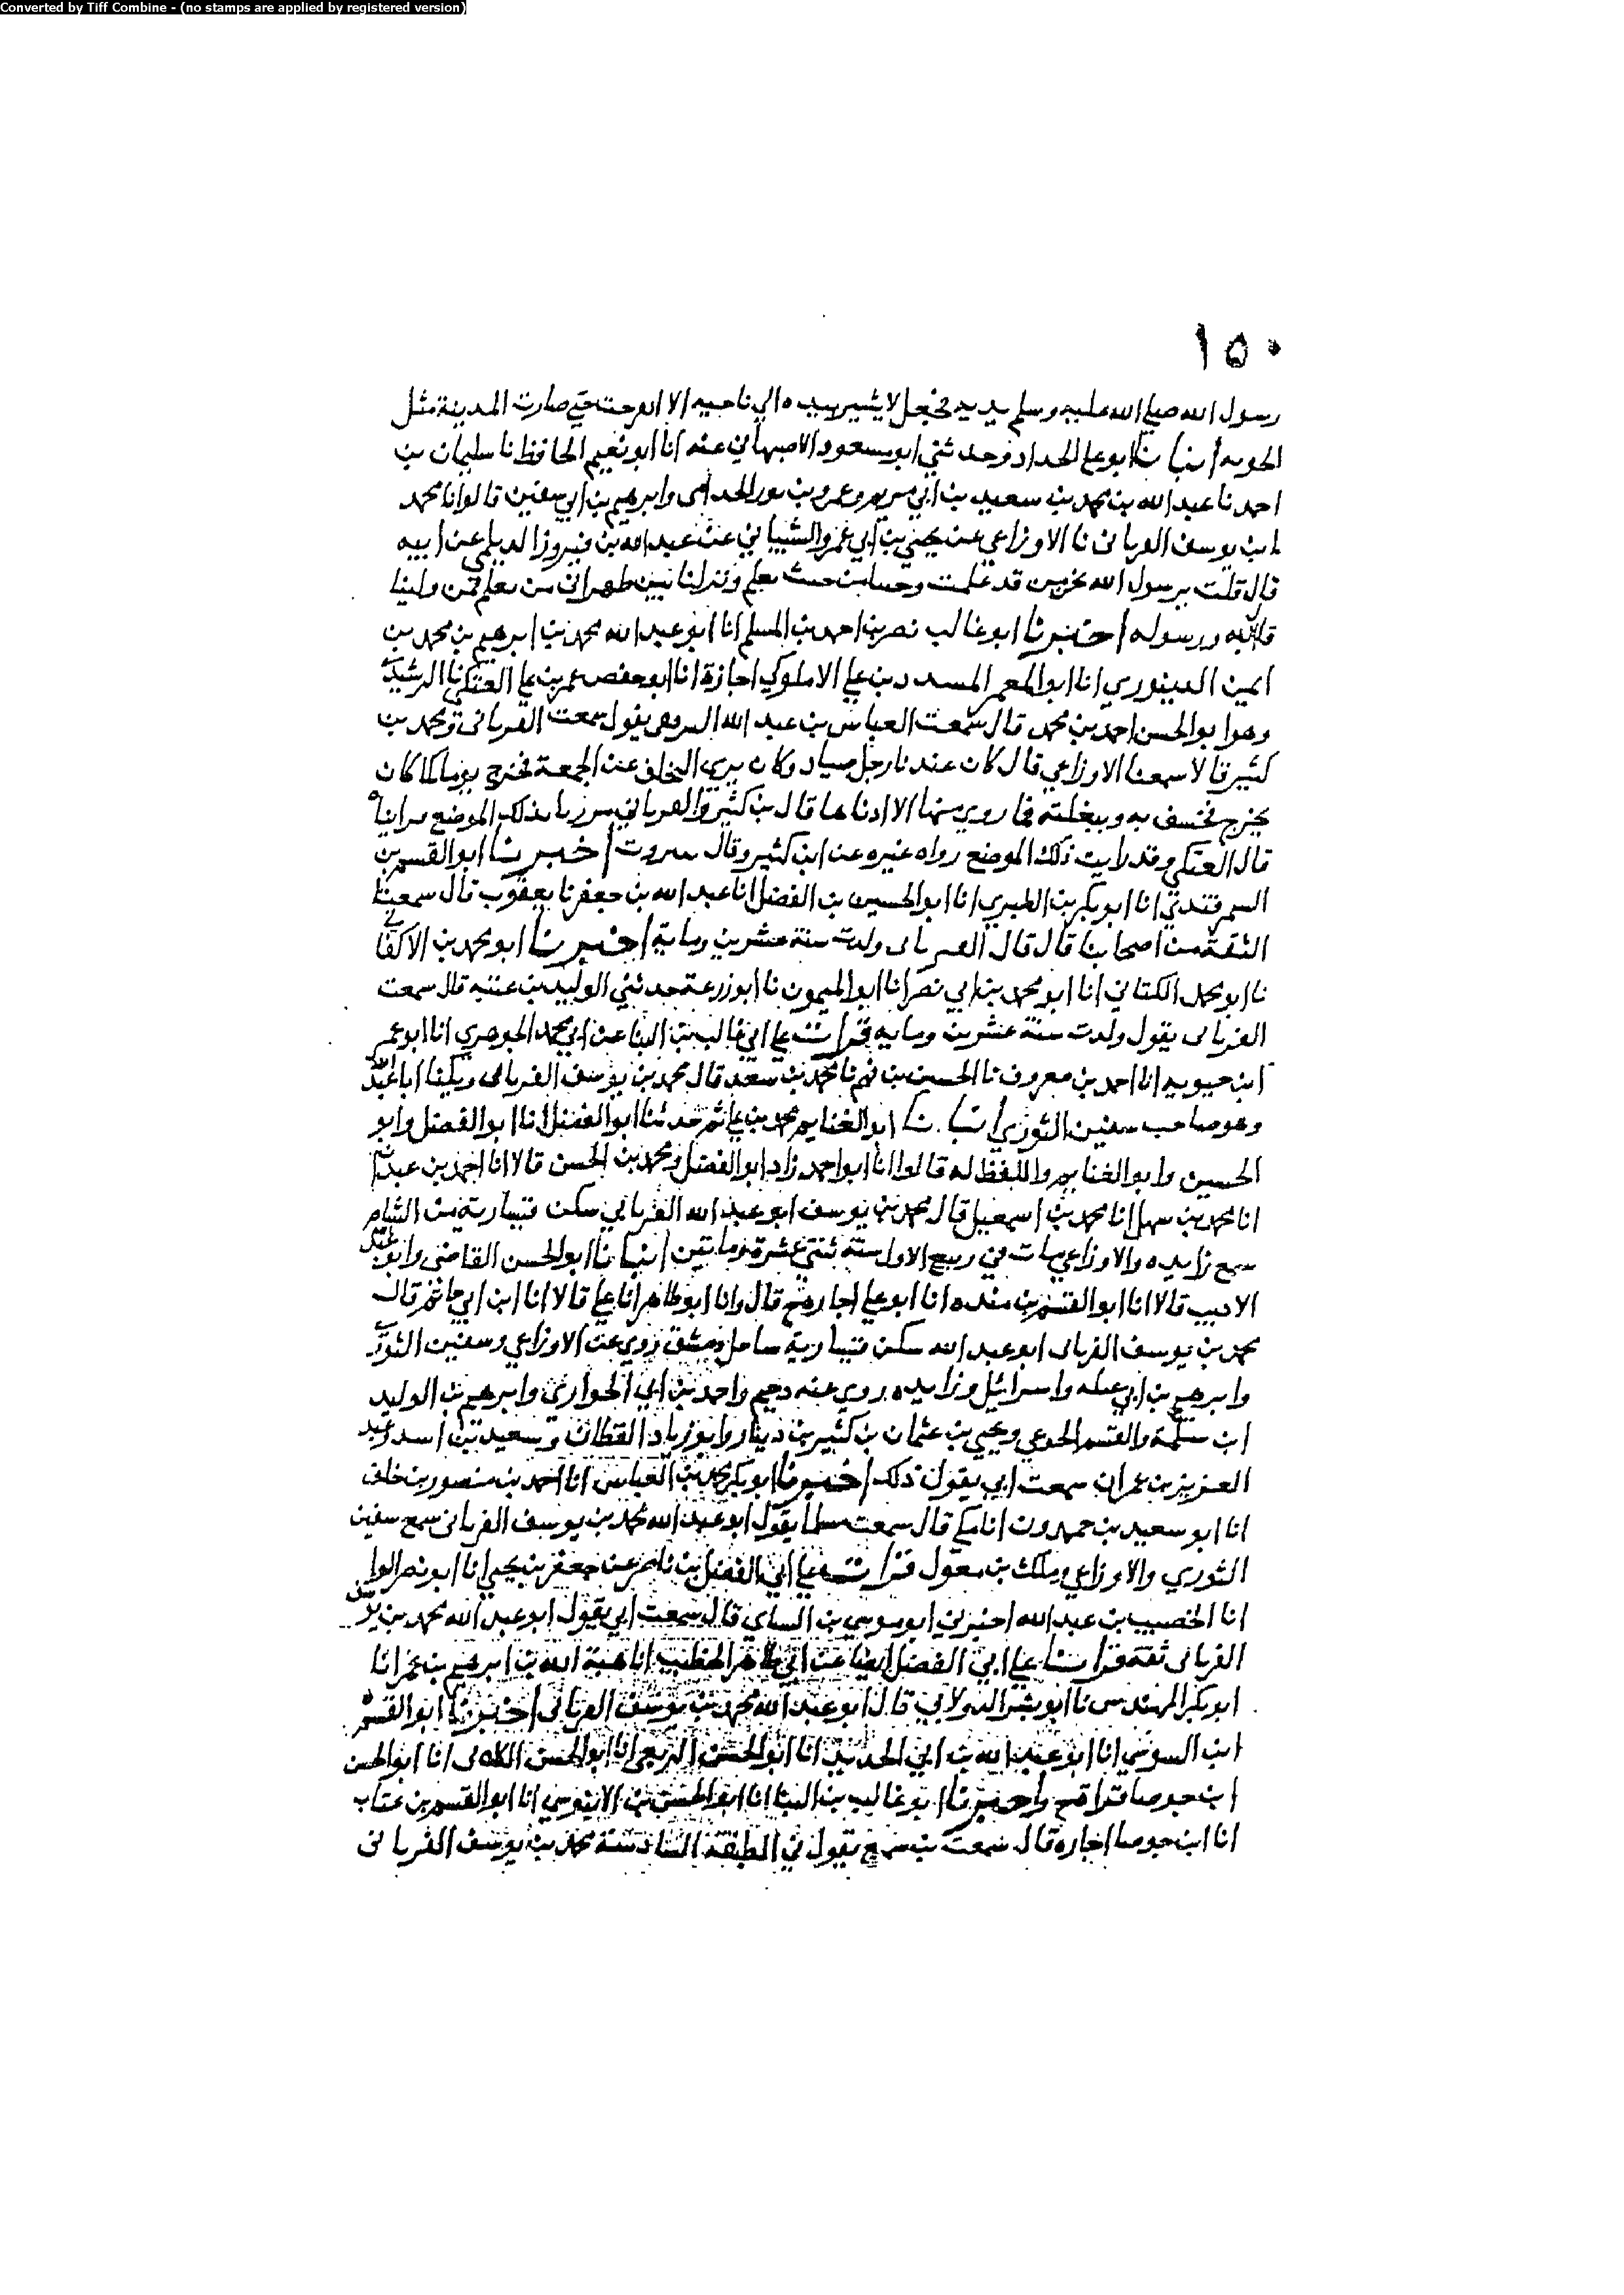 Converted by Tiff Combine - (no stamps are applied by registered version)
١٥٠
رسول الله صلي الله عليه وسلم يديه فجعل لا يشير بيده الي ناحيه الا انفرجت حتي صارت المدينة مثل
الجوبه انبانا ابو علي الحداد وحدثني ابو مسعود الاصبهاني عنه انا ابو نعيم الحافظ نا سليمان بن
احمد نا عبد الله بن محمد بن سعيد بن ابي مريم وعمرو بن ثور الجذامى وابرهيم بن ابي سفين قالوا نا محمد
ابن يوسف الفريابى نا الاوزاعي عن يحيي بن ابي عمرو الشيباني عن عبد الله بن فيروز الديلمي عن ابيه
قال قلت يرسول الله نحن من قد علمت وجينا من حيث تعلم ونزلنا بين ظهرانى من تعلم فمن ولينا
قال الله ورسوله اخبرنا ابو غالب نصر بن احمد بن المسلم انا ابو عبد الله محمد بن ابرهيم بن محمد بن
ايمن الدينوري انا ابو المعمر المسدد بن علي الاملوكي اجازة انا ابو حفص عمر بن علي العتكي نا الرشيدي
وهو ابو الحسن احمد بن محمد قال سمعت العباس بن عبد الله يقول سمعت الفريابى ومحمد بن
كثير قالا سمعنا الاوزاعي قال كان عندنا رجل صياد وكان يري التخلف عن الجمعة فخرج يوما كما كان
يخرج فخسف به وببغلته فما روي منها الا اذناها قال بن كثير والفريابي مررنا بذلك الموضع مرانياه
قال العتكي وقد رايت ذلك الموضع رواه غيره عن ابن كثير وقال ببيروت اخبرنا ابو القسم بن
السمرقندي انا ابو بكر بن الطبري انا ابو الحسين بن الفضل انا عبد الله بن جعفر نا يعقوب قال سمعت
الثقة من اصحابنا قال قال الفريابى ولدت سنة عشرين وماية اخبرنا ابو محمد بن الاكفاني
نا ابو محمد الكتاني انا ابو محمد بن ابي نصر انا ابو الميمون نا ابو زرعة حدثني الوليد بن عتبه قال سمعت
الفريابى يقول ولدت سنة عشرين ومايه قرات علي ابي غالب بن البنا عن ابي محمد الجوهري انا ابو عمر
ابن حيويه انا احمد بن معروف نا الحسين بن فهم نا محمد بن سعد قال محمد بن يوسف الفريابى ويكنا ابا عبد الله
وهو صاحب سفين الثوري انبانا ابو الغنايم محمد بن علي ثم حدثنا ابو الفضل انا ابو الفضل وابو
الحسين وابو الغنايم واللفظ له قالوا انا ابو احمد زاد ابو الفضل ومحمد بن الحسن قالا انا احمد بن عبدان
انا محمد بن سهل انا محمد بن اسمعيل قال محمد بن يوسف ابو عبد الله الفريابي سكن قيسارية من الشام
سمع زايده والاوزاعي مات في ربيع الاول سنة ثنتي عشرة ومايتين انبانا ابو الحسن القاضى وابو عبد الله
الاديب قالا انا ابو القسم بن منده انا ابو علي اجازة ح قال وانا ابو طاهر انا علي قالا انا ابن ابي حاتم قال
محمد بن يوسف الفريابى ابو عبد الله سكن قيسارية ساحل دمشق روي عن الاوزاعي وسفين الثوري
وابرهيم بن ابي عبله واسرائيل وزايده روي عنه دحيم واحمد بن ابي الحواري وابرهيم بن الوليد
ابن سلمة والقسم الجوعي ويحيي بن عثمان بن كثير بن دينار وابو زياد القطان وسعيد بن اسد وعبد
العزيز بن عمران سمعت ابي يقول ذلك اخبرنا ابو بكر محمد بن العباس انا احمد بن منصور بن خلف
انا ابو سعيد بن حمدون انا مكي قال سمعت مسلما يقول ابو عبد الله محمد بن يوسف الفريابى سمع سفين
الثوري والاوزاعي وملك بن مغول قرات علي ابي الفضل بن ناصر عن جعفر بن يحيي انا ابو نصر الوايلي
انا الخصيب بن عبد الله اخبرني ابو موسي بن النساي قال سمعت ابي يقول ابو عبد الله محمد بن يوسف
الفريابى ثقة قرات علي ابي الفضل ايضا عن ابي طاهر الخطيب انا هبة الله بن ابرهيم بن عمر انا
ابو بكر المهندس نا ابو بشر الدولابي قال ابو عبد الله محمد بن يوسف الفريابى اخبرنا ابو القسم
ابن السوسي انا ابو عبد الله بن ابي الحديد انا ابو الحسن الربعي انا ابو الحسن الكلابى انا ابو الحسن
ابن جوصا قراة ح واخبرنا ابو غالب بن البنا انا ابو الحسن بن الابنوسي انا ابو القسم بن عتاب
انا ابن جوصا اجازه قال سمعت بن سميع يقول في الطبقة السادسة محمد بن يوسف الفريابى